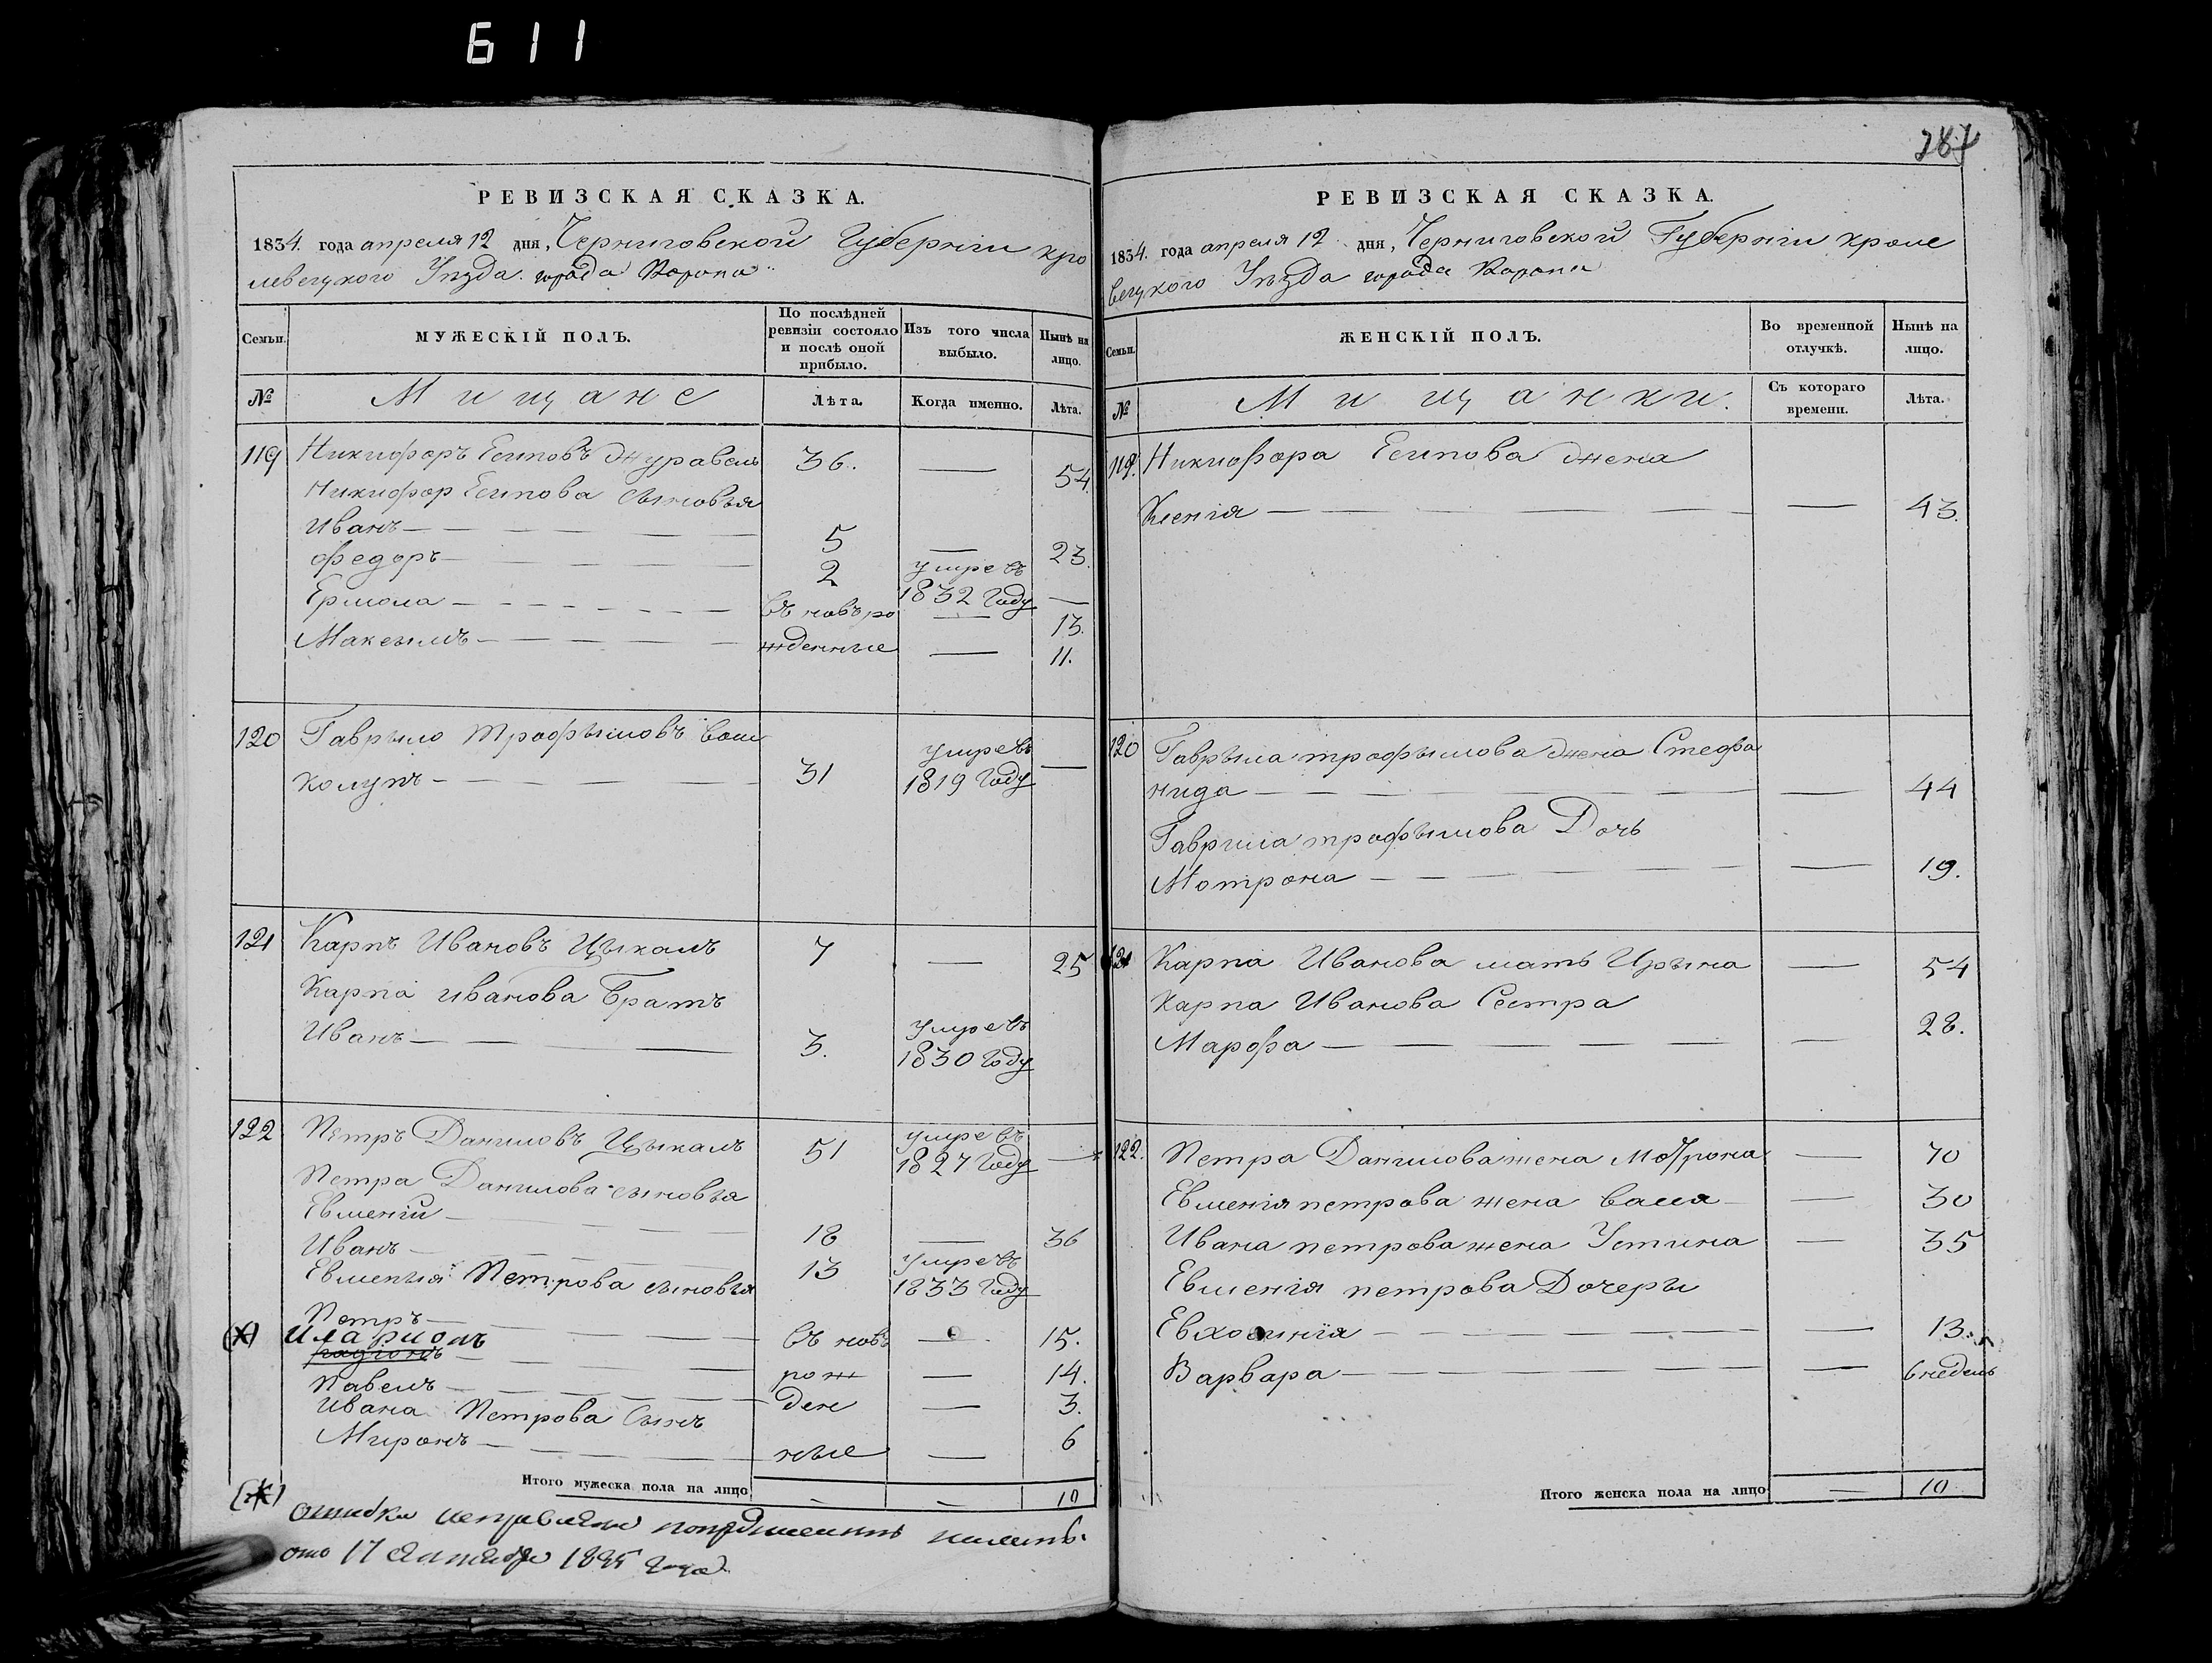 611
РЕВИЗСКАЯ СКАЗКА.
1834. года апреля 12 дня, Черниговской Губерніи кро
левецкого Уѣзда города Коропа
Семьи.
МУЖЕСКІЙ ПОЛЪ.
По послѣдней ревизіи состояло и послѣ оной прибыло.
Изъ того числа выбыло.
Нынѣ на лицо.
№
Мищане
Лѣта.
Когда именно.
Лѣта.
119 Никифоръ Есиповъ Журавель 36. — 54.
Никифор Есипова сыновья
Иванъ — 5 — 23.
Федоръ — 2 умре въ 1832 Году —
Ермола — въ новъ ро — 13.
Максымъ — жденные — 11.
120 Гаврыло Трофымовъ Вош
колупъ — 31 умре въ 1819 Году —
121 Карпъ Ивановъ Цыкалъ 7 — 25
Карпа Иванова Братъ
Иванъ — 3. умре въ 1830 Году
122 Петръ Даниловъ Цыкалъ 51 умре въ 1827 Году —
Петра Данилова сыновья
Евменій — 18 — 36
Иванъ — 13 умре въ 1833 Году
Евменія Петрова сыновья
Петръ — въ новъ — 15.
(X) Иларионъ
рож — 14.
Павелъ — ден — 3.
Ивана Петрова Сынъ
Миронъ — ные — 6
Итого мужеска пола на лицо — — 10
(X) ошибка
17 1835 года
287
РЕВИЗСКАЯ СКАЗКА.
1834. года апреля 12 дня, Черниговской Губерніи кроле
вецкого Уѣзда города Коропа
Семьи.
ЖЕНСКІЙ ПОЛЪ.
Во временной отлучкѣ.
Нынѣ на лицо.
№
Мищанки.
Съ котораго времени.
Лѣта.
119. Никифора Есипова жена
Ксенія — — 43.
120 Гаврыла трофымова жена Стефа
нида — — 44
Гаврила трофымова Дочь
Мотрона — — 19.
121 Карпа Иванова мать Ирына — 54
Карпа Иванова Сестра
Марфа — — 28.
122. Петра Данилова жена Мотрона — 70
Евменія петрова жена Васса — 30
Ивана петрова жена Устина — 35
Евменія петрова Дочеры
Евхосинія — — 13.
Варвара — — 6 недель
Итого женска пола на лицо — 10